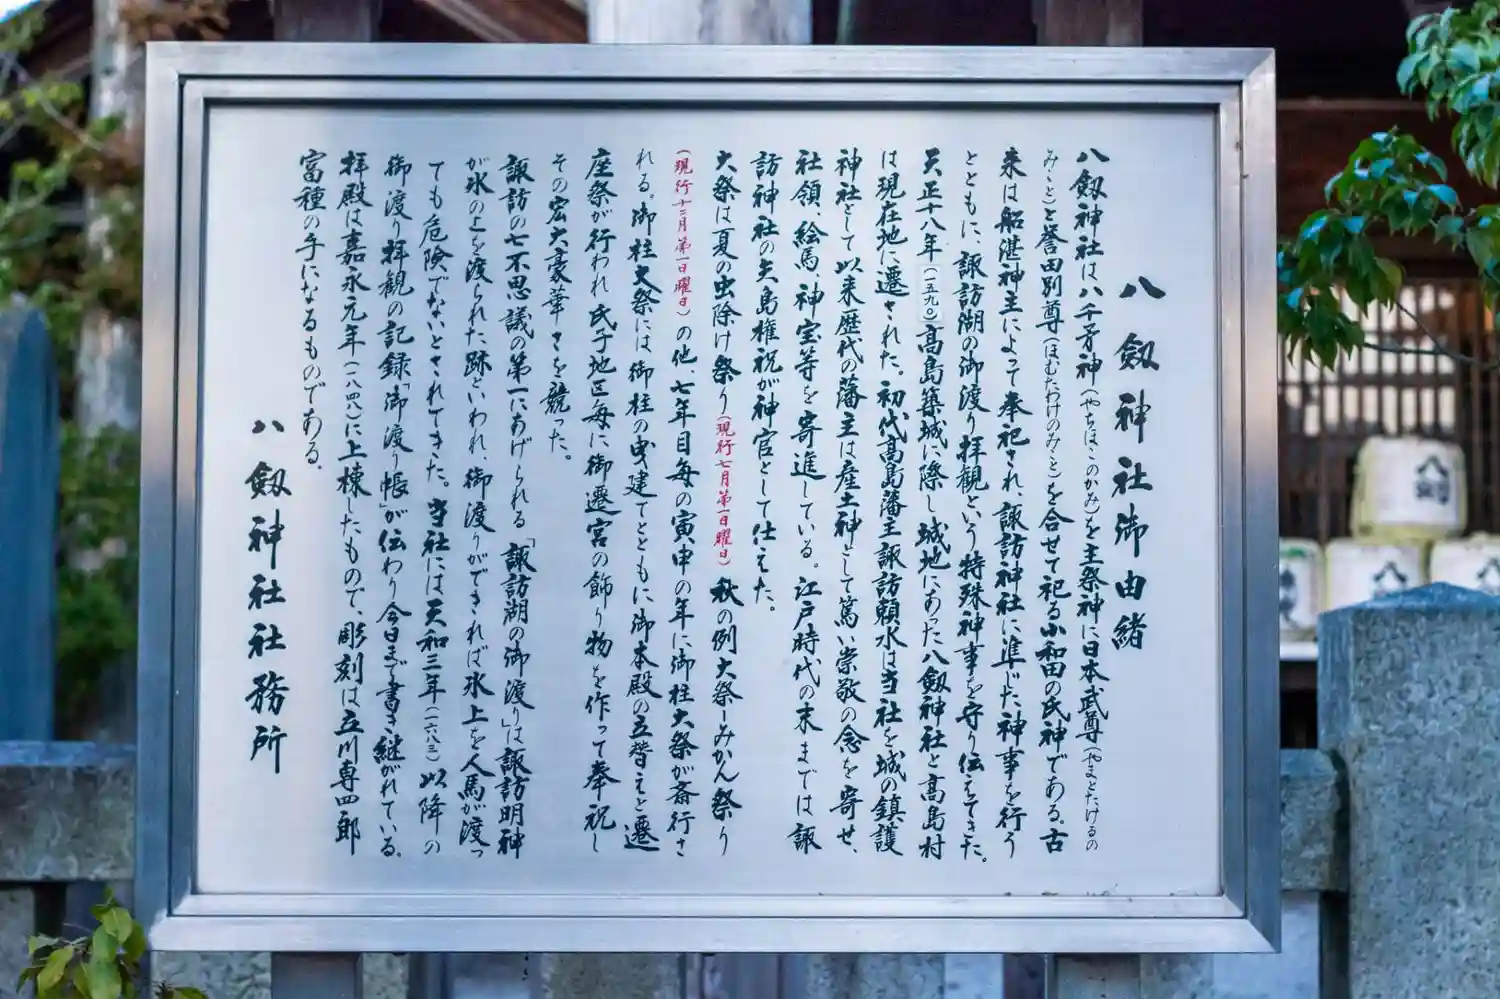 八劔神社御由緒
八劔神社は八千矛神(やちほこのかみ)を主祭神に日本武尊(やまとたけるの
みこと)と誉田別尊(ほむたわけのみこと)を合せて祀る小和田の氏神である。古
来は船湛神主によって奉祀され、諏訪神社に準じた神事を行う
とともに、諏訪湖の御渡り拝観という特殊神事を守り伝えてきた。
天正十八年(一五九〇)高島築城に際し城地にあった八劔神社と高島村
は現在地に遷された。初代高島藩主諏訪頼水は当社を城の鎮護
神社として以来歴代の藩主は産土神として篤い崇敬の念を寄せ、
社領、絵馬、神宝等を寄進している。江戸時代の末までは諏
訪神社の矢島権祝が神官として仕えた。
大祭は夏の虫除け祭り(現行七月第一日曜日)秋の例大祭ーみかん祭り
(現行十二月第一日曜日)の他、七年目毎の寅申の年に御柱大祭が斎行さ
れる。御柱大祭には御柱の曳建てとともに御本殿の立替えと遷
座祭が行われ氏子地区毎に御遷宮の飾り物を作って奉祝し
その宏大豪華さを競った。
諏訪の七不思議の第一にあげられる「諏訪湖の御渡り」は諏訪明神
が氷の上を渡られた跡といわれ、御渡りができれば氷上を人馬が渡っ
ても危険でないとされてきた。当社には天和三年(一六八三)以降の
御渡り拝観の記録「御渡り帳」が伝わり今日まで書き継がれている。
拝殿は嘉永元年(一八四八)に上棟したもので、彫刻は立川専四郎
富種の手になるものである。
八劔神社社務所
八劔
八
八